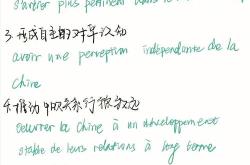 s'avérer plus pertinent dans le
3. 形成自主的对华认知
avoir une perception indépendante de la
Chine
4. 推动中欧关系行稳致远
oeuvrer la Chine à un développement
stable de leurs relations à long terme